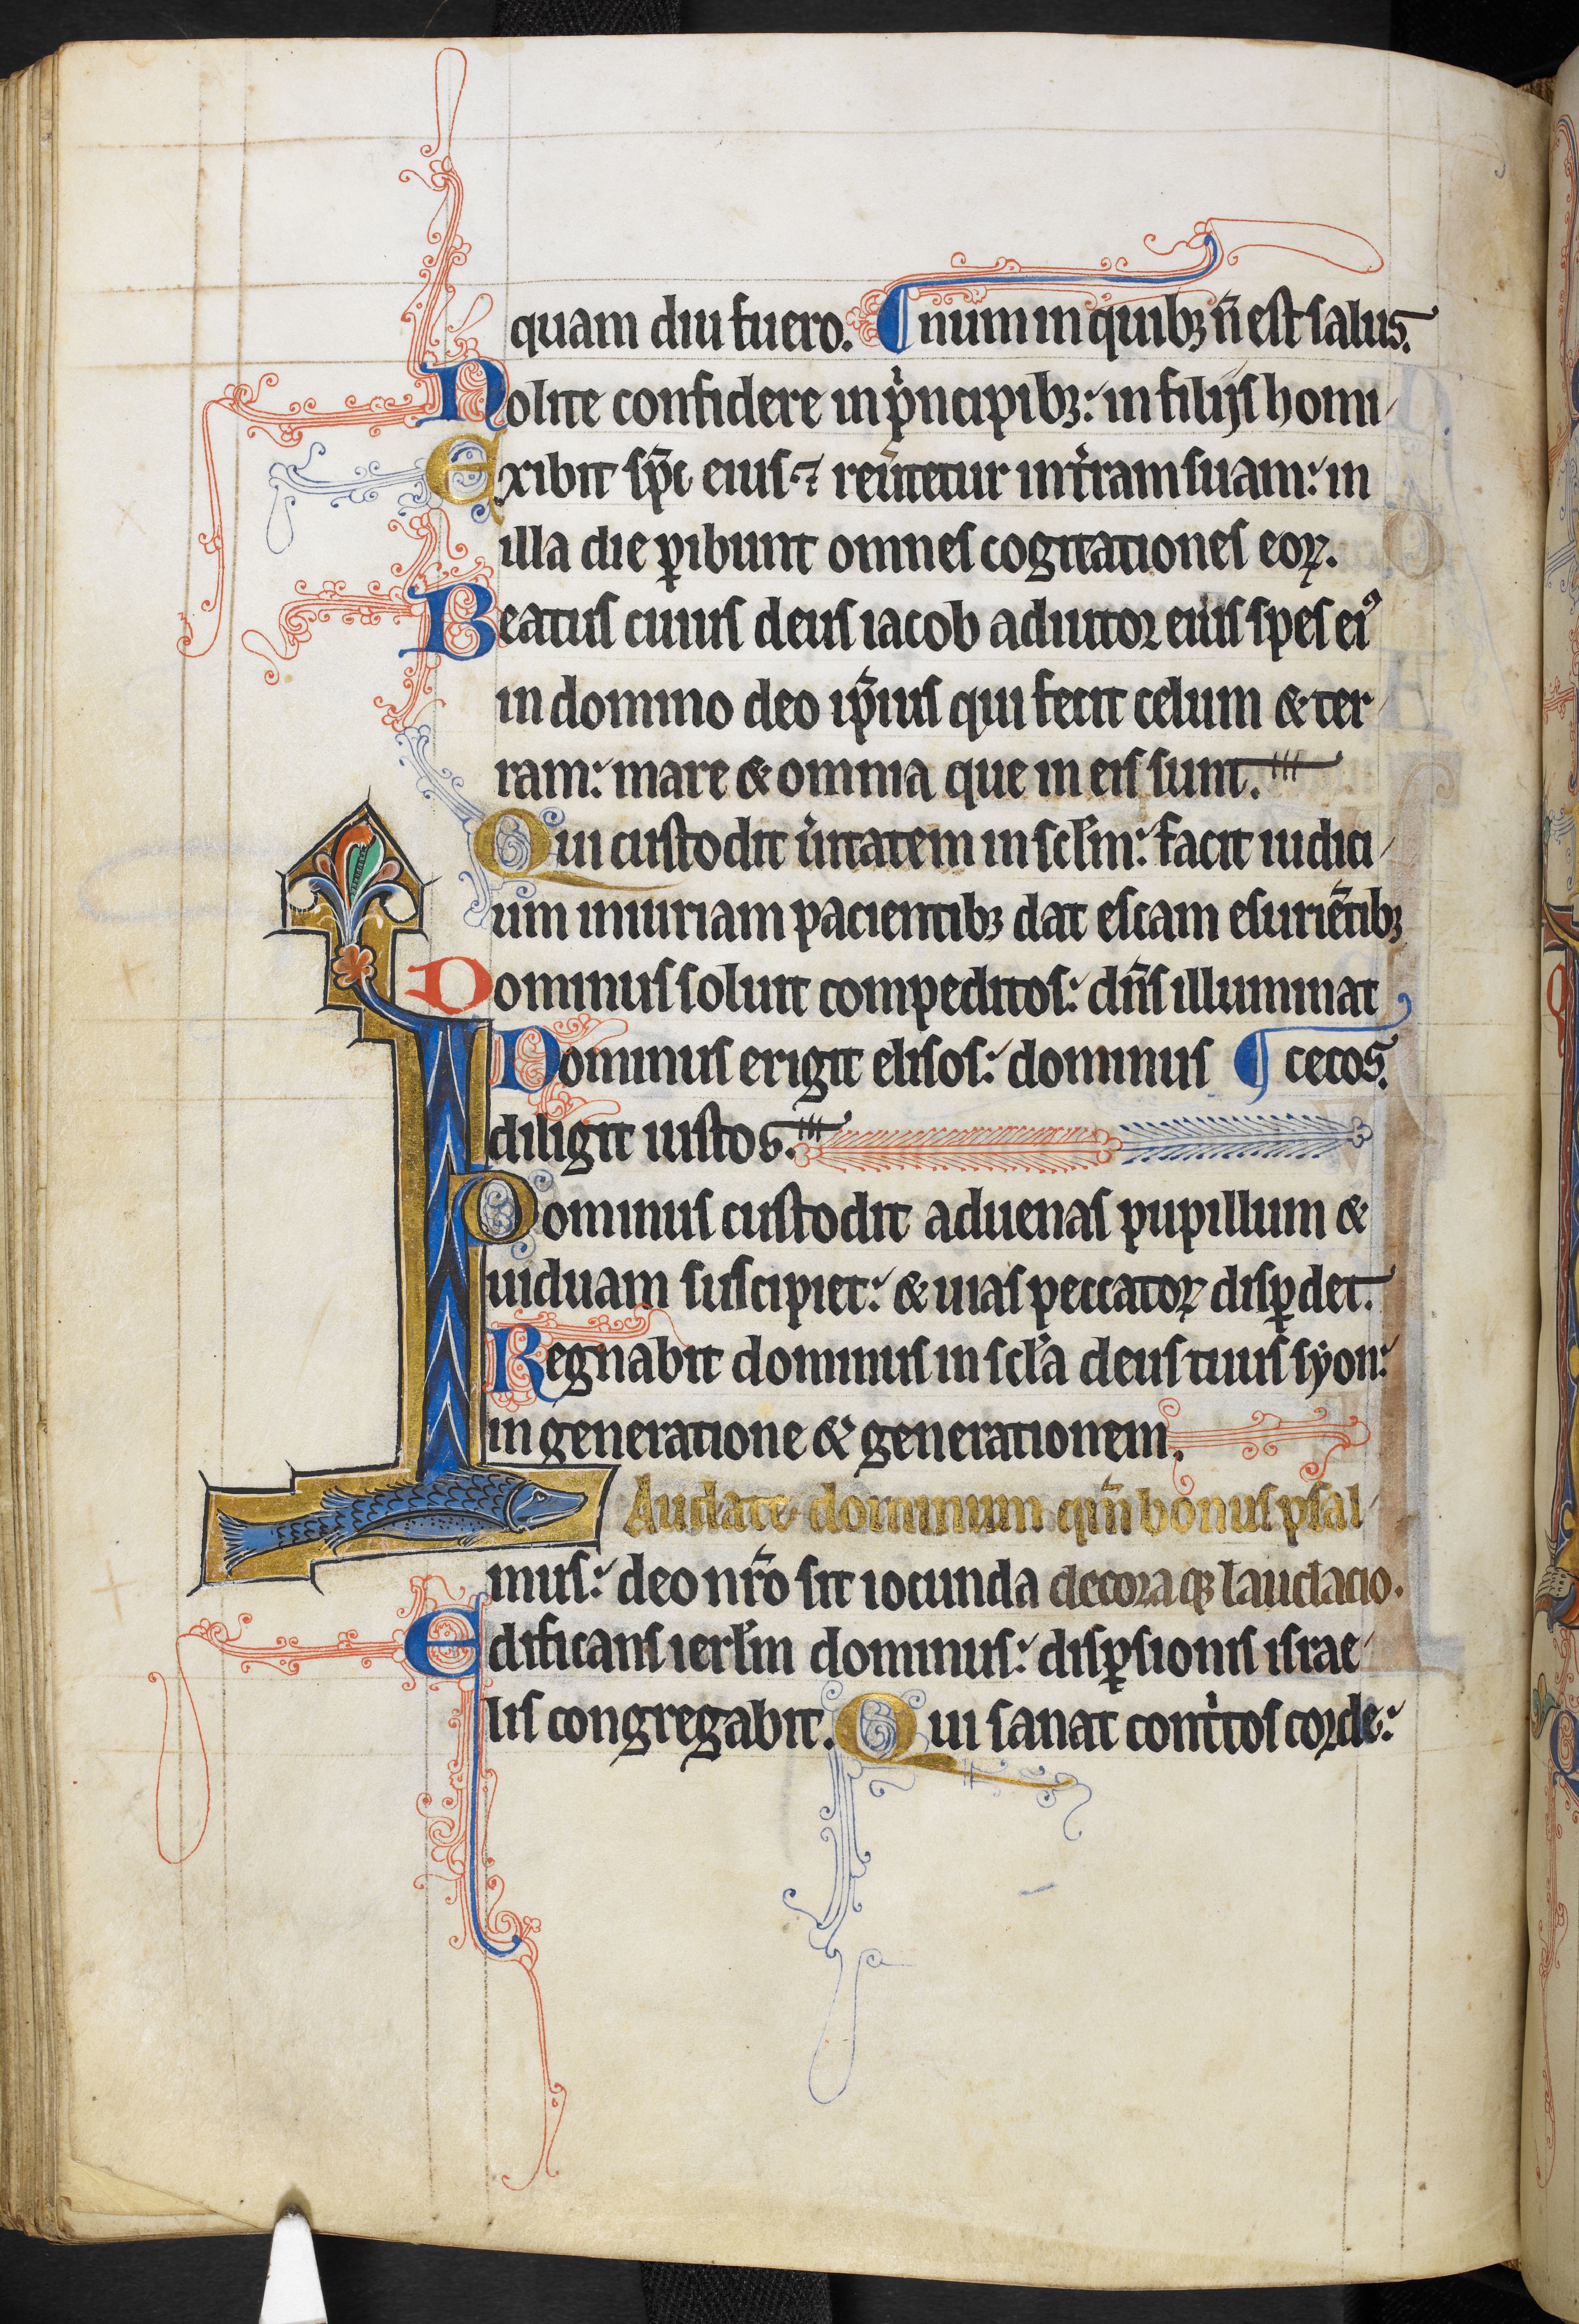 quam diu fuero. ¶ num in quibꝫ n̄ est salus.
Nolite confidere in pͥncipibꝫ: in filijs homi
Exibit sp̄c eius ⁊ reu͛tetur in tr͛ram suam: in
illa die ꝑibunt omnes cogitationes eoꝝ.
Beatus cuius deus iacob adiutor eius spes eiꝰ
in domino deo ip̄ius qui fecit celum & ter
ram: mare & omnia que in eis sunt.
Qui custodit u͛itatem in sclm̄: facit iudici
um iniuriam pacientibꝫ dat escam esuriētibꝫ
Dominus soluit compeditos: dn̄s illuminat
Dominus erigit elisos: dominus ¶ cecos.
diligit iustos.
Dominus custodit aduenas pupillum &
uiduam suscipiet: & uias peccatoꝝ disꝑdet.
Regnabit dominus in scl̄a deus tuus syon:
in generatione & generationem.
Laudate dominum qm̄ bonus psal
mus: deo nr̄o sit iocunda decoraqꝫ laudacio.
Edificans ierl̄m dominus: disꝑsionis israe
lis congregabit. Qui sanat contͥtos corde: